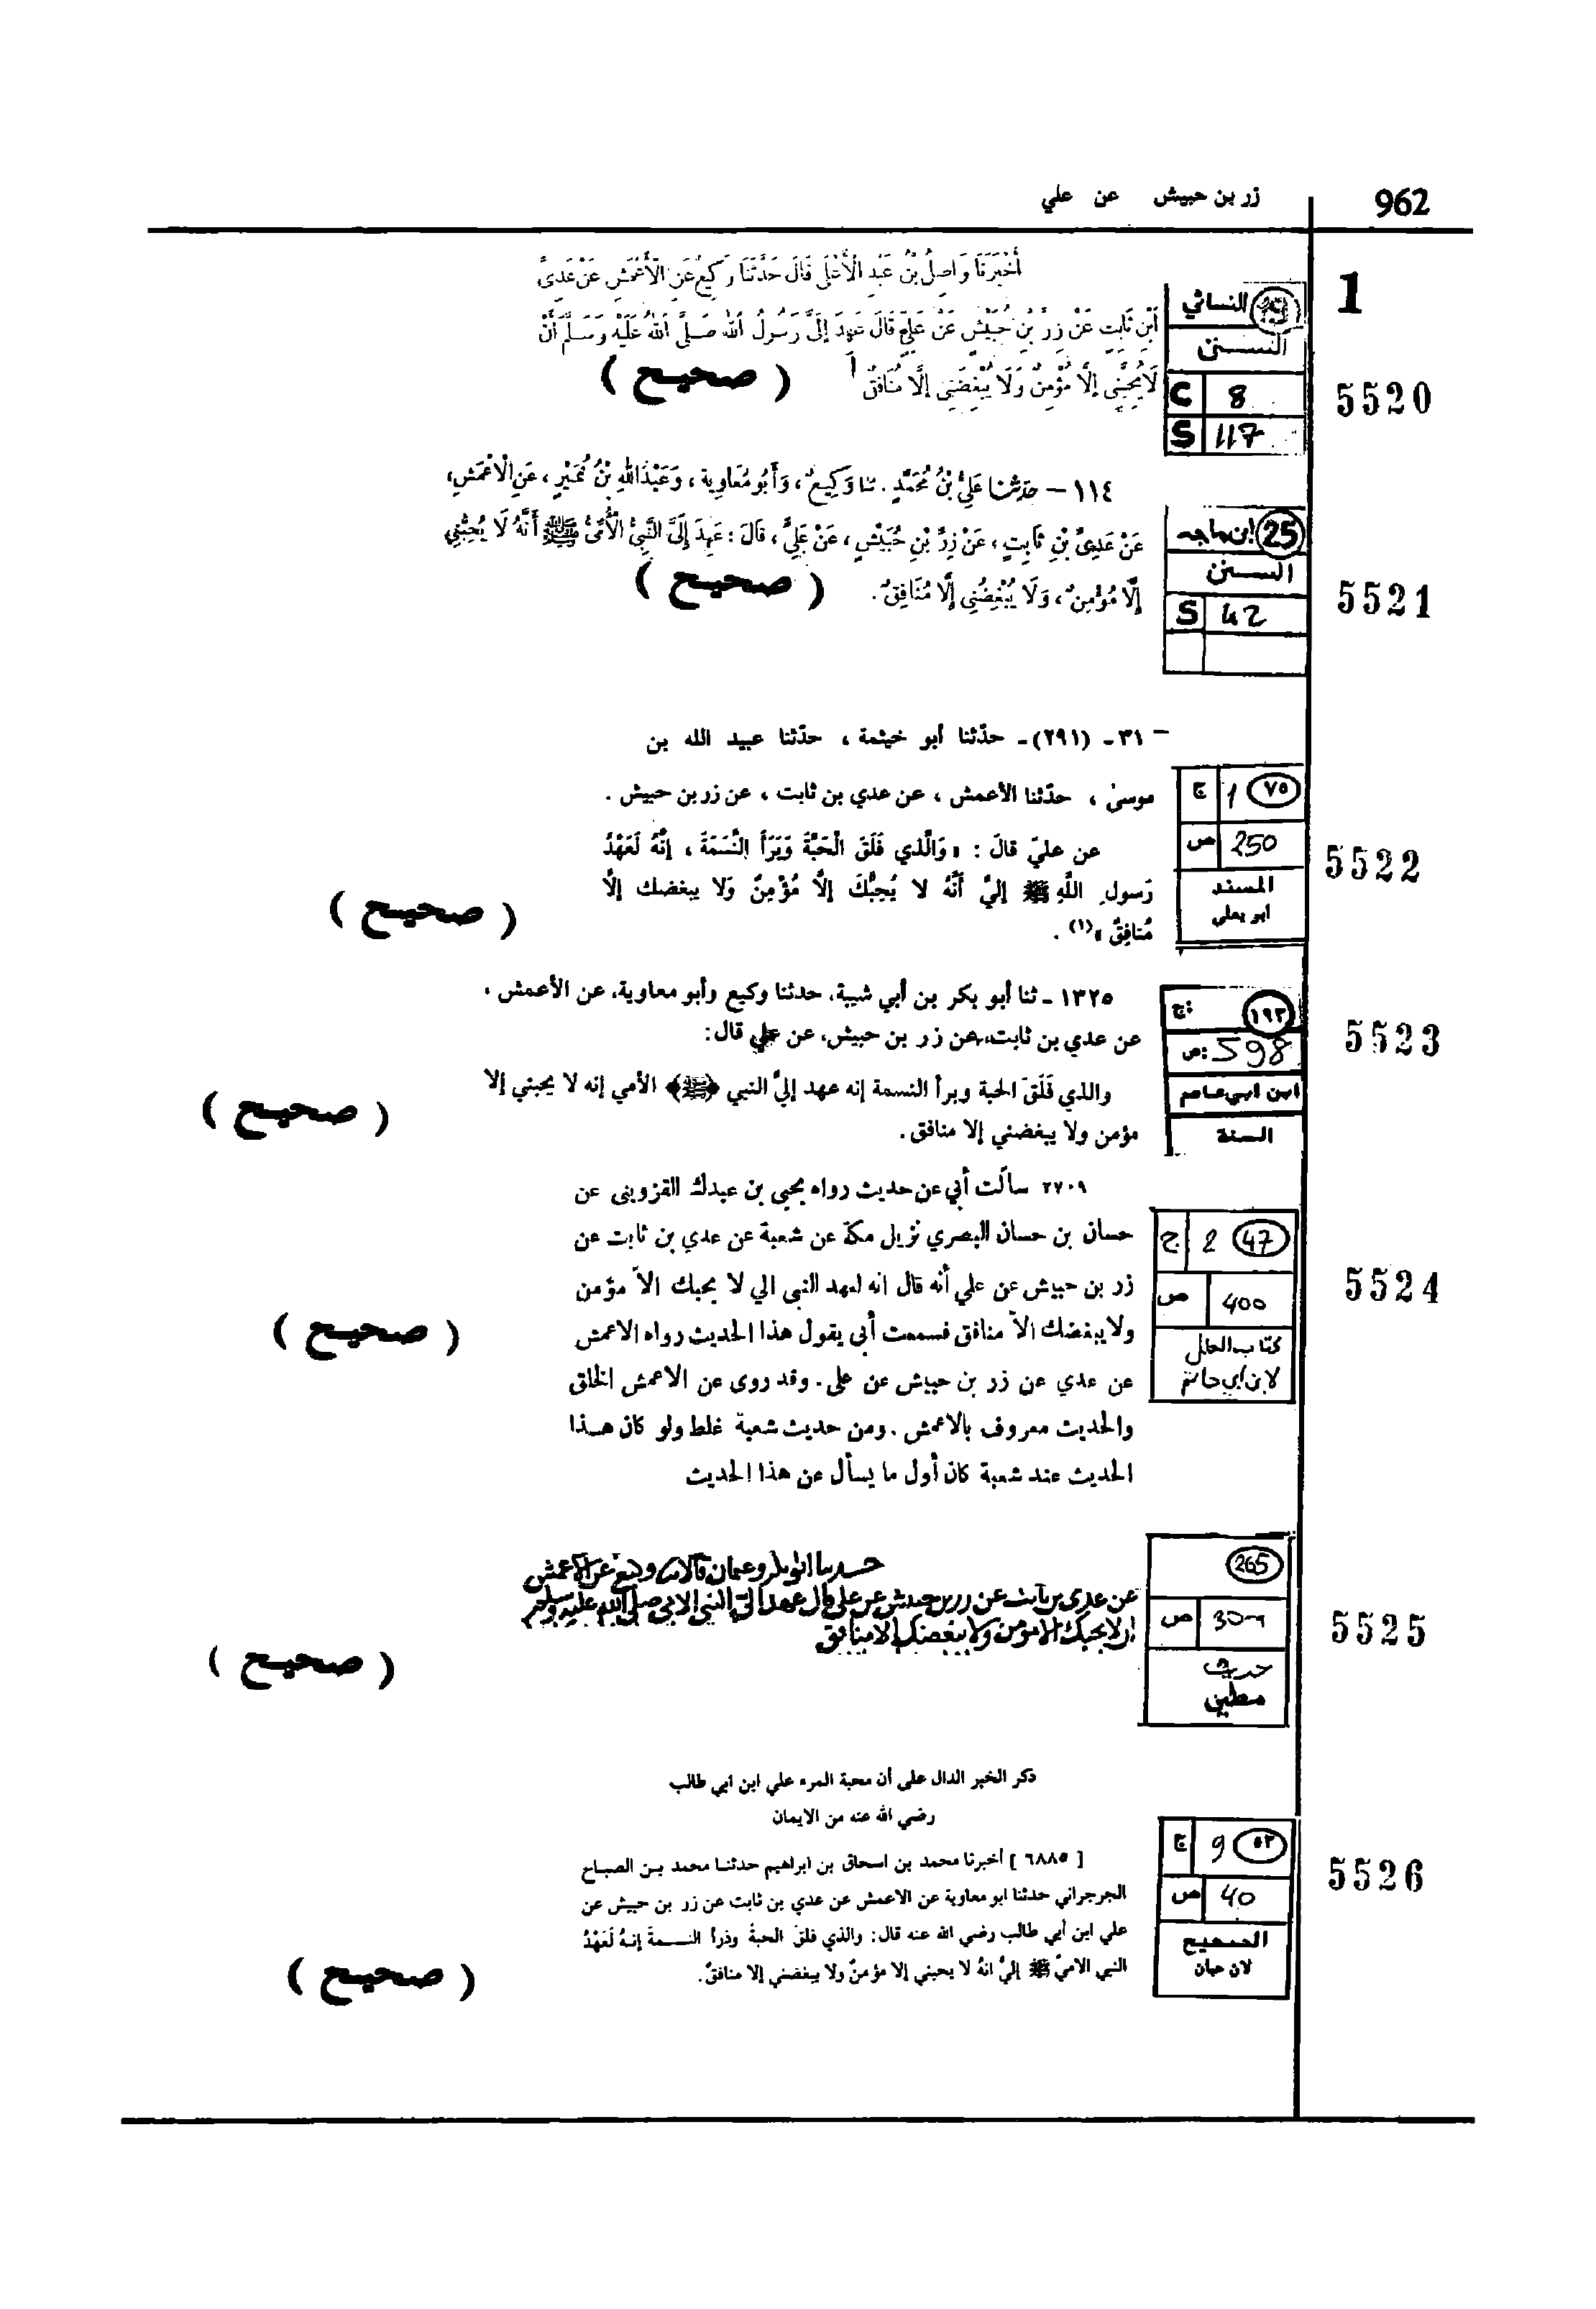 962
زر بن حبيش عن علي
1
أَخْبَرَنَا وَاصِلُ بْنُ عَبْدِ الْأَعْلَى قَالَ حَدَّثَنَا وَكِيعٌ عَنِ الْأَعْمَشِ عَنْ عَدِيِّ
ابْنِ ثَابِتٍ عَنْ زِرِّ بْنِ حُبَيْشٍ عَنْ عَلِيٍّ قَالَ عَهِدَ إِلَيَّ رَسُولُ اللهِ صَلَّى اللهُ عَلَيْهِ وَسَلَّمَ أَنْ
لَا يُحِبَّنِي إِلَّا مُؤْمِنٌ وَلَا يُبْغِضَنِي إِلَّا مُنَافِقٌ
( صحيح )
النسائي
السنن
C 8
S 117
5520
١١٤ – حدثنا عَلِيُّ بْنُ مُحَمَّدٍ . ثنا وَكِيعٌ ، وَأَبُو مُعَاوِيَة ، وَعَبْدُ اللهِ بْنُ نُمَيْرٍ ، عَنِ الْأَعْمَشِ ،
عَنْ عَدِيِّ بْنِ ثَابِتٍ ، عَنْ زِرِّ بْنِ حُبَيْشٍ ، عَنْ عَلِيٍّ ، قَالَ : عَهِدَ إِلَيَّ النَّبِيُّ الْأُمِّيُّ ﷺ أَنَّهُ لَا يُحِبُّنِي
إِلَّا مُؤْمِنٌ ، وَلَا يُبْغِضُنِي إِلَّا مُنَافِقٌ .
( صحيح )
25 ابن ماجه
السنن
S 42
5521
– ٣١ - (٢٩١) - حدّثنا أبو خيثمة ، حدّثنا عبيد الله بن
موسىٰ ، حدّثنا الأعمش ، عن عدي بن ثابت ، عن زر بن حبيش .
عن عليّ قالَ : « وَالَّذي فَلَقَ الْحَبَّةَ وَبَرَأَ النَّسَمَةَ ، إنَّهُ لَعَهْدُ
رَسولِ اللَّهِ ﷺ إليَّ أَنَّهُ لا يُحِبُّكَ إلَّا مُؤْمِنٌ وَلا يبغضك إلَّا
مُنافِقٌ »(١) .
( صحيح )
ج 1 ٧٥
ص 250
المسند
أبو يعلى
5522
١٣٢٥ - ثنا أبو بكر بن أبي شيبة، حدثنا وكيع وأبو معاوية، عن الأعمش ،
عن عدي بن ثابت، عن زر بن حبيش، عن علي قال:
والذي فَلَقَ الحبة وبرأ النسمة إنه عهد إليَّ النبي ﴿ﷺ﴾ الأمي إنه لا يحبني إلا
مؤمن ولا يبغضني إلا منافق.
( صحيح )
ج: ١٩٣
ص: 598
ابن ابي عاصم
السنة
5523
٢٧٠٩ سألت أبي عن حديث رواه يحيى بن عبدك القزوينى عن
حسان بن حسان البصري نزيل مكة عن شعبة عن عدي بن ثابت عن
زر بن حبيش عن علي أنه قال انه لعهد النبى الي لا يحبك الاّ مؤمن
ولا يبغضك الاّ منافق فسمعت أبى يقول هذا الحديث رواه الاعمش
عن عدي عن زر بن حبيش عن على . وقد روى عن الاعمش الخلق
والحديث معروف بالاعمش . ومن حديث شعبة غلط ولو كان هــذا
الحديث عند شعبة كان أول ما يسأل عن هذا الحديث
( صحيح )
ج 2 47
ص 400
كتاب العلل
لابن ابي حاتم
5524
حدثنا ابو بكر وعثمان قالا وكيع عن الاعمش
عن عدي بن ثابت عن زر بن حبيش عن علي قال عهد الي النبي الامي صلى الله عليه وسلم
ان لا يحبك الا مومن ولا يبغضك الا منافق
( صحيح )
265
ص
حديث
مطين
5525
ذكر الخبر الدال على أن محبة المرء علي ابن ابي طالب
رضي الله عنه من الايمان
[ ٦٨٨٥ ] أخبرنا محمد بن اسحاق بن ابراهيم حدثنـا محمد بـن الصبـاح
الجرجراني حدثنا ابو معاوية عن الاعمش عن عدي بن ثابت عن زر بن حبيش عن
علي ابن أبي طالب رضي الله عنه قال: والذي فلقَ الحبةَ وذرأ النســمةَ إنـهُ لَعَهْدُ
النبي الاميّ ﷺ إليَّ انهُ لا يحبني إلا مؤمنٌ ولا يبغضني إلا منافقٌ.
( صحيح )
ج 9 ٥٢
ص 40
الصحيح
لابن حبان
5526